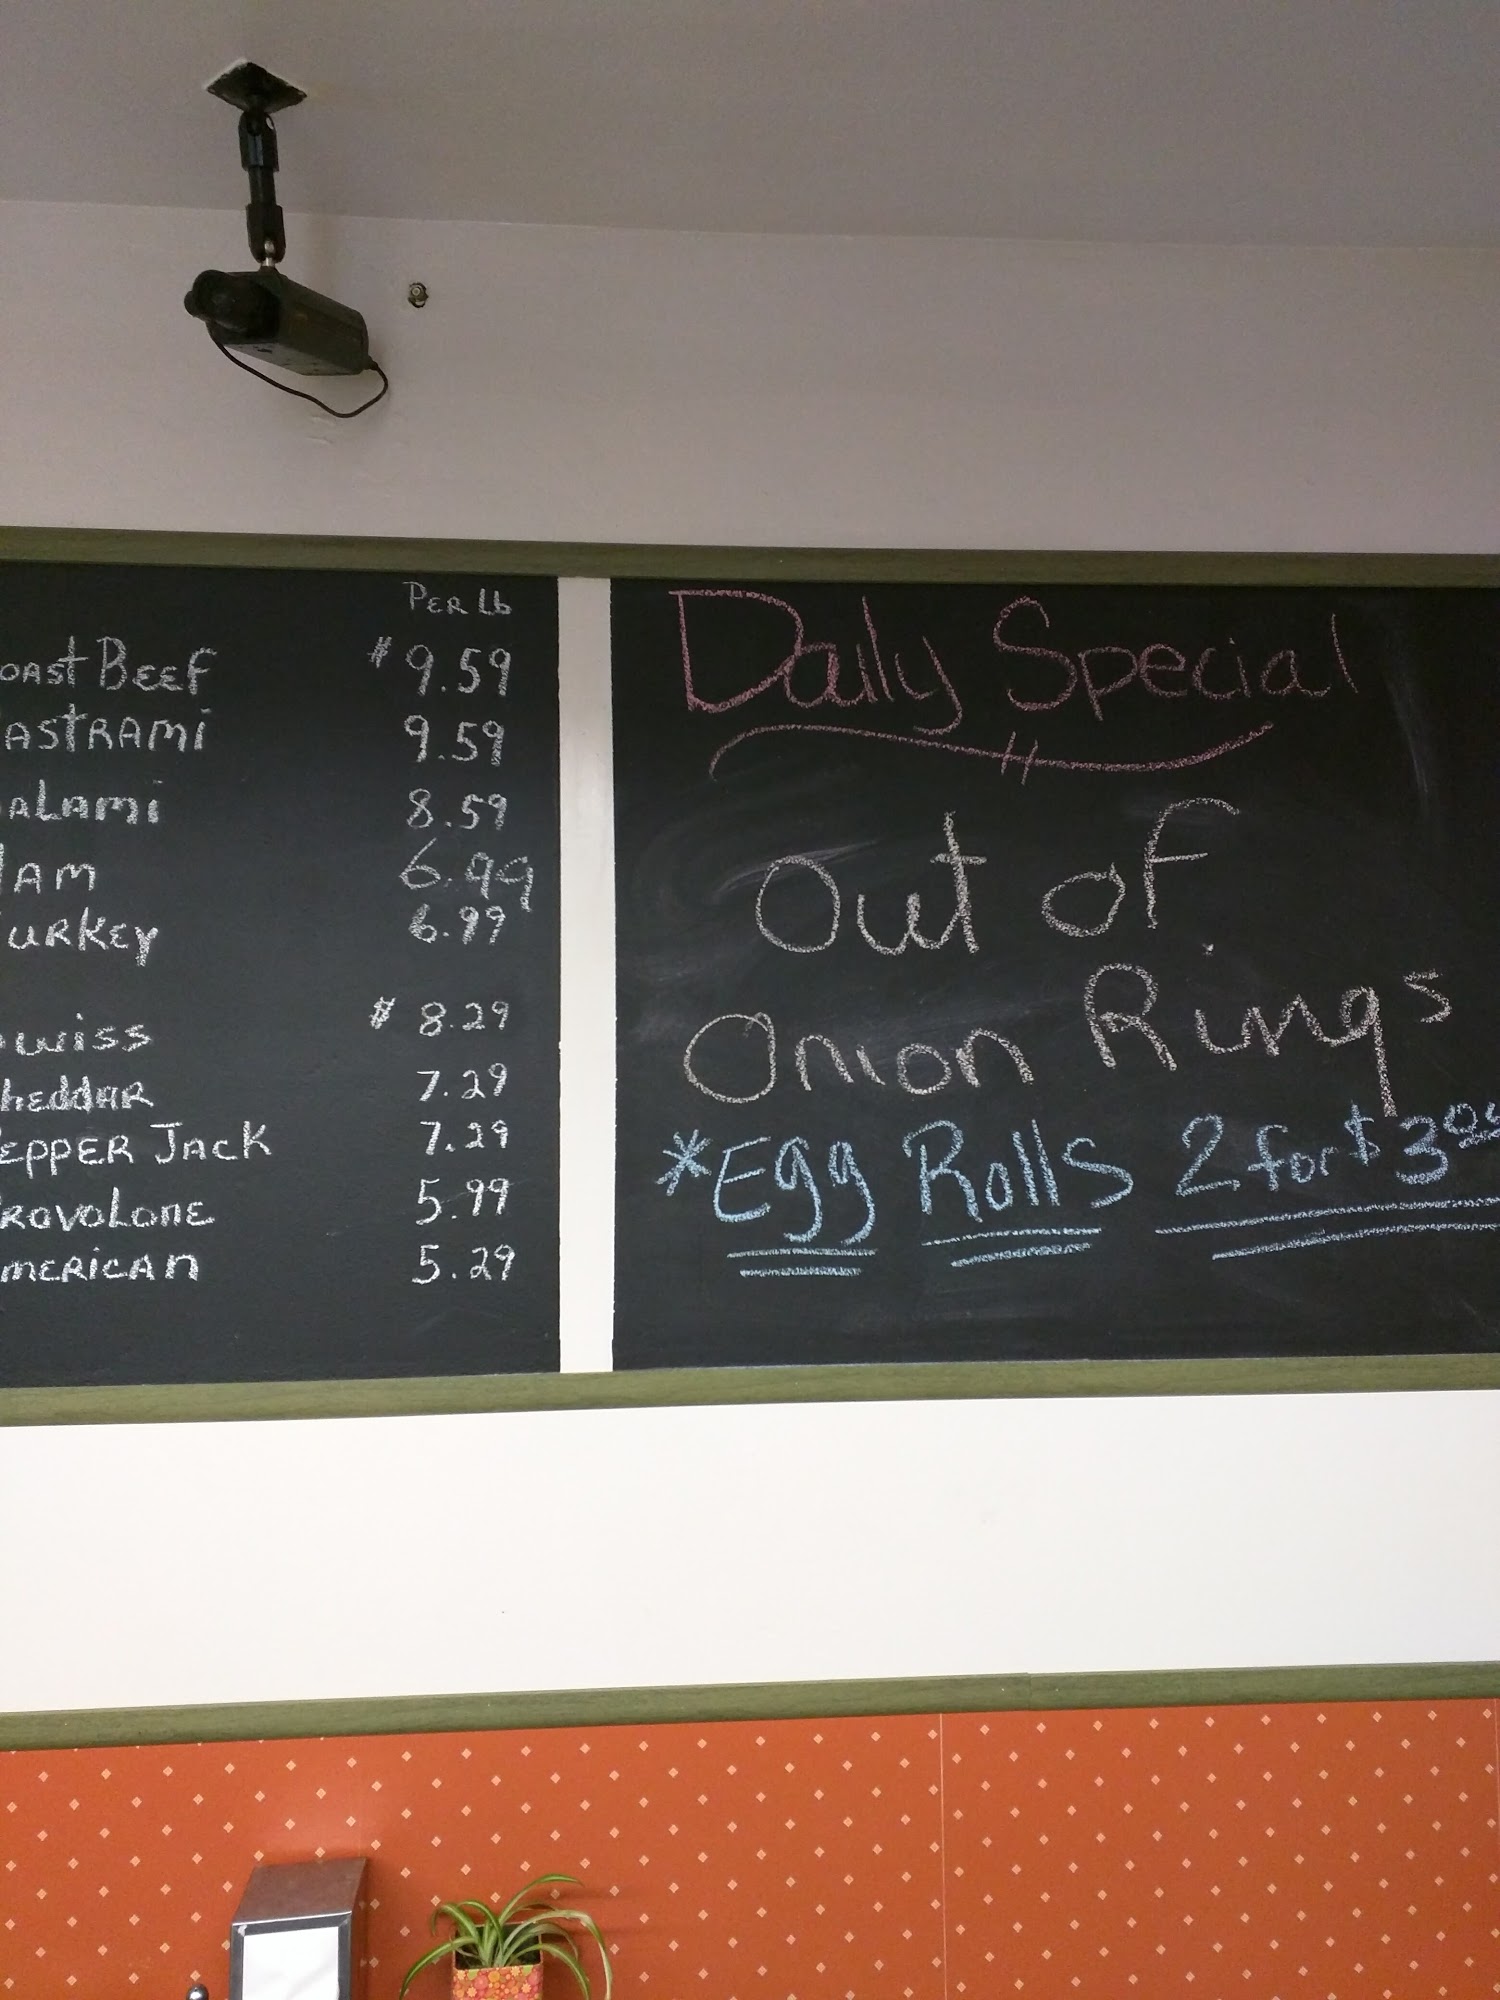 PER Lb
oast Beef $ 9.59
astrami 9.59
alami 8.59
am 6.99
urkey 6.99
wiss $ 8.29
heddar 7.29
epper Jack 7.29
rovolone 5.99
merican 5.29
Daily Special
out of
Onion Rings
*Egg Rolls 2 for $3